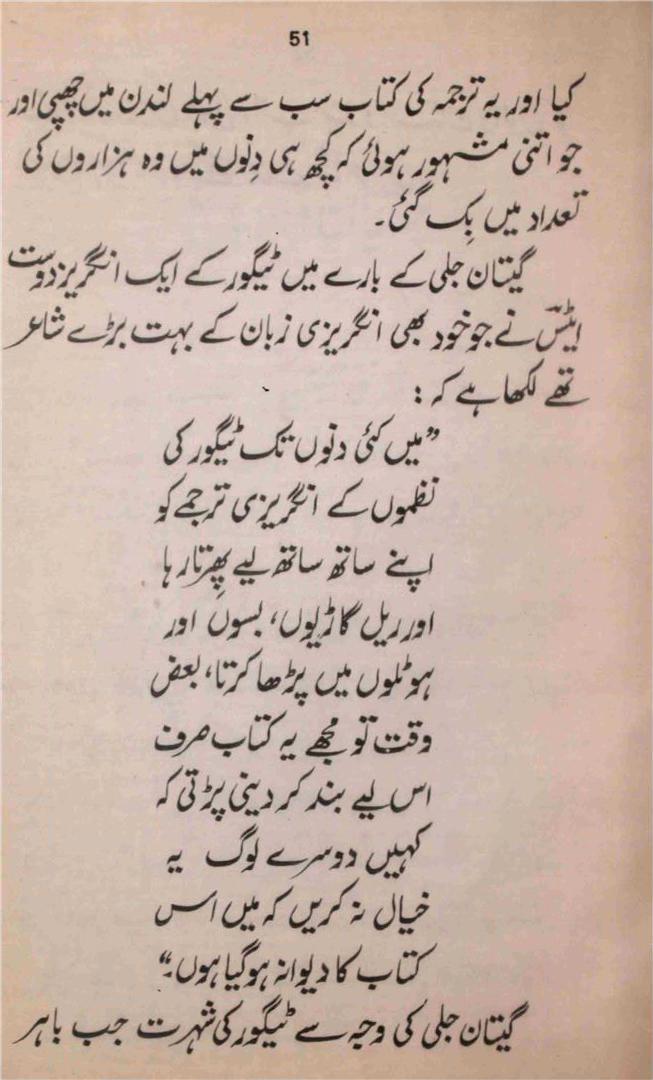 51
کیا اور یہ ترجمہ کی کتاب سب سے پہلے لندن میں چھپی اور
جو اتنی مشہور ہوئی کہ کچھ ہی دِنوں میں وہ ہزاروں کی
تعداد میں بِک گئی۔
گیتان جلی کے بارے میں ٹیگور کے ایک انگریز دوست
ایٹس نے جو خود بھی انگریزی زبان کے بہت بڑے شاعر
تھے لکھا ہے کہ :
”میں کئی دنوں تک ٹیگور کی
نظموں کے انگریزی ترجمے کو
اپنے ساتھ ساتھ لیے پِھرتا رہا
اور ریل گاڑیوں، بسوں اور
ہوٹلوں میں پڑھا کرتا، بعض
وقت تو مجھے یہ کتاب صرف
اس لیے بند کر دینی پڑتی کہ
کہیں دوسرے لوگ یہ
خیال نہ کریں کہ میں اس
کتاب کا دیوانہ ہو گیا ہوں۔“
گیتان جلی کی وجہ سے ٹیگور کی شہرت جب باہر